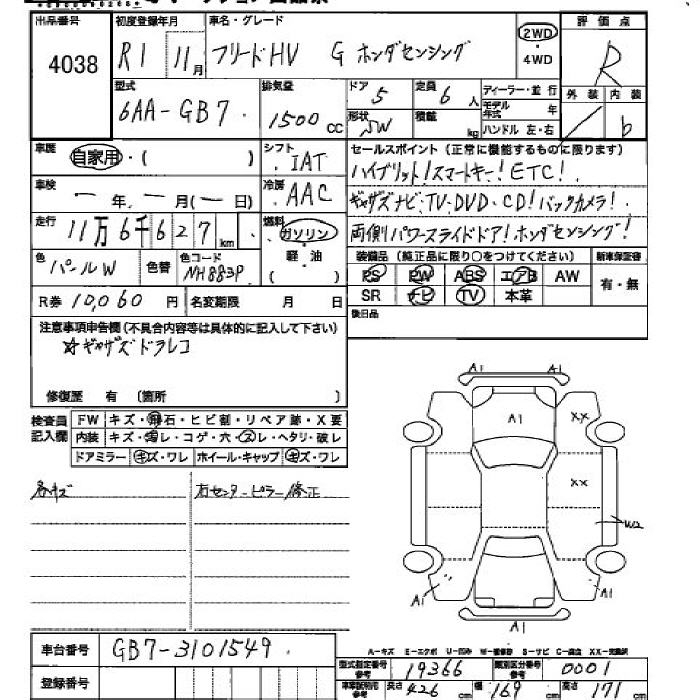 出品番号 初度登録年月 車名・グレード 2WD 評価点
4038 R1 11月 フリードHV G ホンダセンシング ・4WD R
型式 排気量 ドア 定員 ディーラー・並行 外装 内装
6AA-GB7 1500cc 5 6人 モデル年式 年 / b
形状 SW 積載 kg ハンドル 左・右
車歴 自家用・( ) シフト IAT セールスポイント(正常に機能するものに限ります)
ハイブリット!スマートキー!ETC!
車検 ー年、ー月(ー日) 冷房 AAC ギャザズナビ、TV・DVD・CD!バックカメラ!
走行 11万6千627km 燃料 ガソリン 両側パワースライドドア!ホンダセンシング!
軽・油
( )
色 パールW 色替 色コード NH883P 装備品(純正品に限り○をつけてください) 新車保証書
PS PW ABS エアB AW 有・無
R券 10,060円 名変期限 月 日 SR ナビ TV 本革
注意事項申告欄(不具合内容等は具体的に記入して下さい) 後日品
☆ギャザズドラレコ
修復歴 有 〔箇所 〕
検査員記入欄 FW キズ・飛石・ヒビ割・リペア跡・X要
内装 キズ・汚レ・コゲ・穴・スレ・ヘタリ・破レ
ドアミラー キズ・ワレ ホイール・キャップ キズ・ワレ
各キズ 右センターピラー修正
A1 A1
A1 XX
XX
W2
A1 A1
A1
車台番号 GB7-3101549
A-キズ E-エクボ U-凹み W-補修跡 S-サビ C-腐蝕 XX-交換済
登録番号 型式指定番号 参考 19366 類別区分番号 参考 0001
車車説明用 参考 長さ 426cm 幅 169cm 高さ 171cm